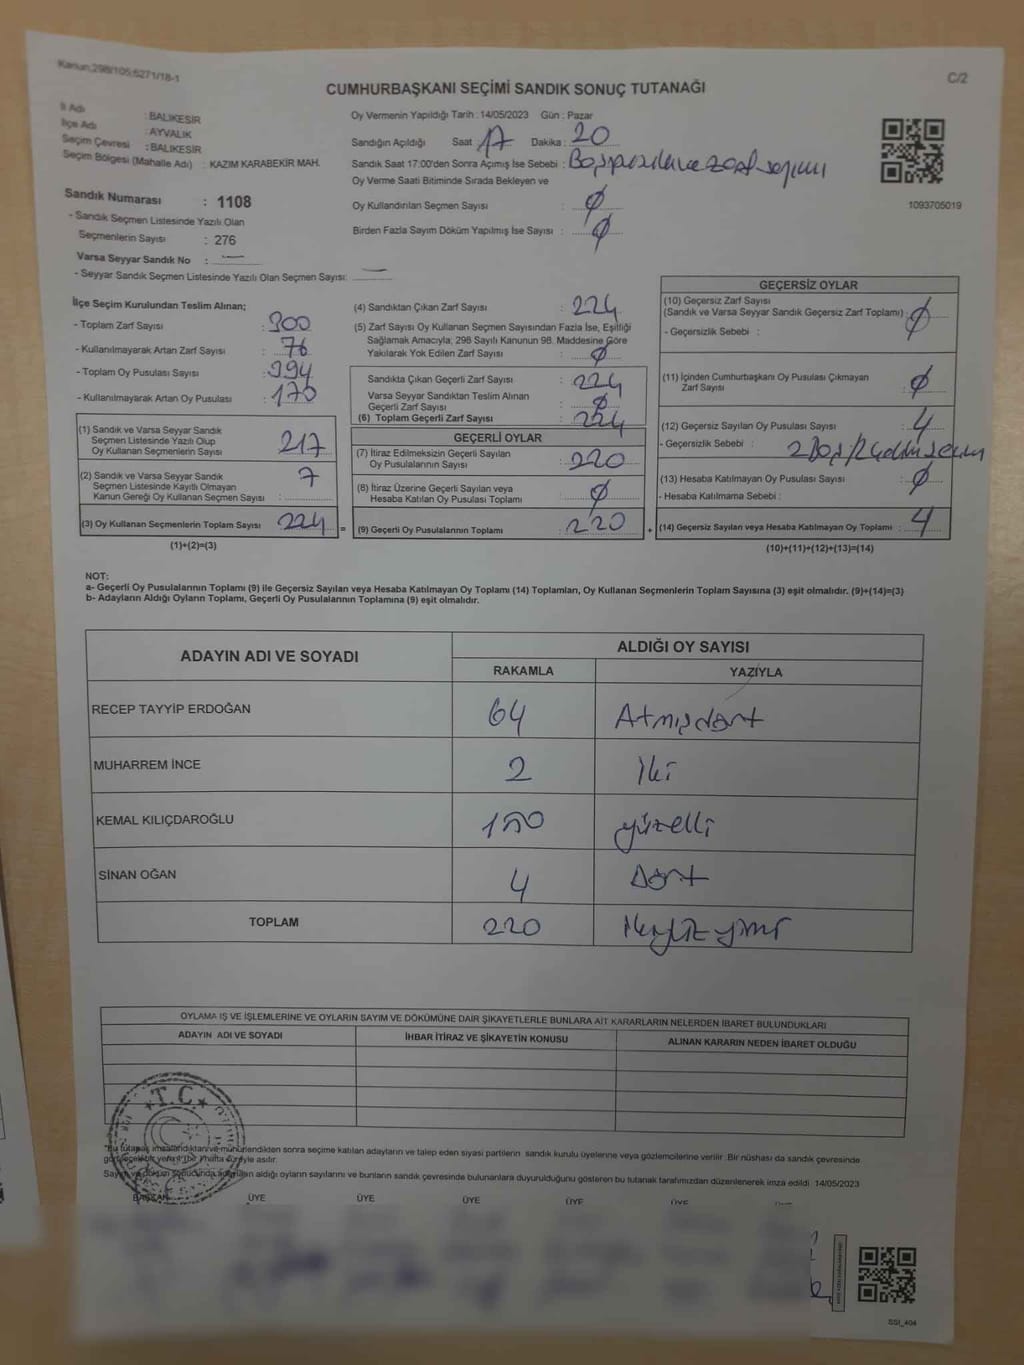 Kanun,298/105;6271/18-1
C/2
CUMHURBAŞKANI SEÇİMİ SANDIK SONUÇ TUTANAĞI
İl Adı : BALIKESİR
İlçe Adı : AYVALIK
Seçim Çevresi : BALIKESİR
Seçim Bölgesi (Mahalle Adı) : KAZIM KARABEKİR MAH.
Sandık Numarası : 1108
- Sandık Seçmen Listesinde Yazılı Olan
Seçmenlerin Sayısı : 276
Varsa Seyyar Sandık No : —
- Seyyar Sandık Seçmen Listesinde Yazılı Olan Seçmen Sayısı: —
Oy Vermenin Yapıldığı Tarih : 14/05/2023 Gün : Pazar
Sandığın Açıldığı Saat 17 Dakika : 20
Sandık Saat 17:00'den Sonra Açımış İse Sebebi : Boş pusula ve zarf sayımı
Oy Verme Saati Bitiminde Sırada Bekleyen ve
Oy Kullandırılan Seçmen Sayısı : Ø
Birden Fazla Sayım Döküm Yapılmış İse Sayısı : Ø
1093705019
İlçe Seçim Kurulundan Teslim Alınan;
- Toplam Zarf Sayısı : 300
- Kullanılmayarak Artan Zarf Sayısı : 76
- Toplam Oy Pusulası Sayısı : 394
- Kullanılmayarak Artan Oy Pusulası : 170
(1) Sandık ve Varsa Seyyar Sandık
Seçmen Listesinde Yazılı Olup
Oy Kullanan Seçmenlerin Sayısı : 217
(2) Sandık ve Varsa Seyyar Sandık
Seçmen Listesinde Kayıtlı Olmayan
Kanun Gereği Oy Kullanan Seçmen Sayısı : 7
(3) Oy Kullanan Seçmenlerin Toplam Sayısı : 224 =
(1)+(2)=(3)
(4) Sandıktan Çıkan Zarf Sayısı : 224
(5) Zarf Sayısı Oy Kullanan Seçmen Sayısından Fazla İse, Eşitliği
Sağlamak Amacıyla, 298 Sayılı Kanunun 98. Maddesine Göre
Yakılarak Yok Edilen Zarf Sayısı : Ø
Sandıkta Çıkan Geçerli Zarf Sayısı : 224
Varsa Seyyar Sandıktan Teslim Alınan
Geçerli Zarf Sayısı : Ø
(6) Toplam Geçerli Zarf Sayısı : 224
GEÇERLİ OYLAR
(7) İtiraz Edilmeksizin Geçerli Sayılan
Oy Pusulalarının Sayısı : 220
(8) İtiraz Üzerine Geçerli Sayılan veya
Hesaba Katılan Oy Pusulası Toplamı : Ø
(9) Geçerli Oy Pusulalarının Toplamı : 220 +
GEÇERSİZ OYLAR
(10) Geçersiz Zarf Sayısı
(Sandık ve Varsa Seyyar Sandık Geçersiz Zarf Toplamı) : Ø
- Geçersizlik Sebebi :
(11) İçinden Cumhurbaşkanı Oy Pusulası Çıkmayan
Zarf Sayısı : Ø
(12) Geçersiz Sayılan Oy Pusulası Sayısı : 4
- Geçersizlik Sebebi : 2 Boş
(13) Hesaba Katılmayan Oy Pusulası Sayısı : Ø
- Hesaba Katılmama Sebebi :
(14) Geçersiz Sayılan veya Hesaba Katılmayan Oy Toplamı : 4
(10)+(11)+(12)+(13)=(14)
NOT:
a- Geçerli Oy Pusulalarının Toplamı (9) ile Geçersiz Sayılan veya Hesaba Katılmayan Oy Toplamı (14) Toplamları, Oy Kullanan Seçmenlerin Toplam Sayısına (3) eşit olmalıdır. (9)+(14)=(3)
b- Adayların Aldığı Oyların Toplamı, Geçerli Oy Pusulalarının Toplamına (9) eşit olmalıdır.
ADAYIN ADI VE SOYADI
ALDIĞI OY SAYISI
RAKAMLA YAZIYLA
RECEP TAYYİP ERDOĞAN 64 Atmışdört
MUHARREM İNCE 2 İki
KEMAL KILIÇDAROĞLU 150 yüzelli
SİNAN OĞAN 4 Dört
TOPLAM 220 ikiyüz yirmi
OYLAMA İŞ VE İŞLEMLERİNE VE OYLARIN SAYIM VE DÖKÜMÜNE DAİR ŞİKAYETLERLE BUNLARA AİT KARARLARIN NELERDEN İBARET BULUNDUKLARI
ADAYIN ADI VE SOYADI İHBAR İTİRAZ VE ŞİKAYETİN KONUSU ALINAN KARARIN NEDEN İBARET OLDUĞU
T.C.
"Bu tutanak imzalandıktan ve mühürlendikten sonra seçime katılan adayların ve talep eden siyasi partilerin sandık kurulu üyelerine veya gözlemcilerine verilir. Bir nüshası da sandık çevresinde
görülecek bir yere 1 (bir) hafta süreyle asılır.
Sayım ve döküm sonucunda adayların aldığı oyların sayılarını ve bunların sandık çevresinde bulunanlara duyurulduğunu gösteren bu tutanak tarafımızdan düzenlenerek imza edildi. 14/05/2023
BAŞKAN ÜYE ÜYE ÜYE ÜYE ÜYE
SSI_404